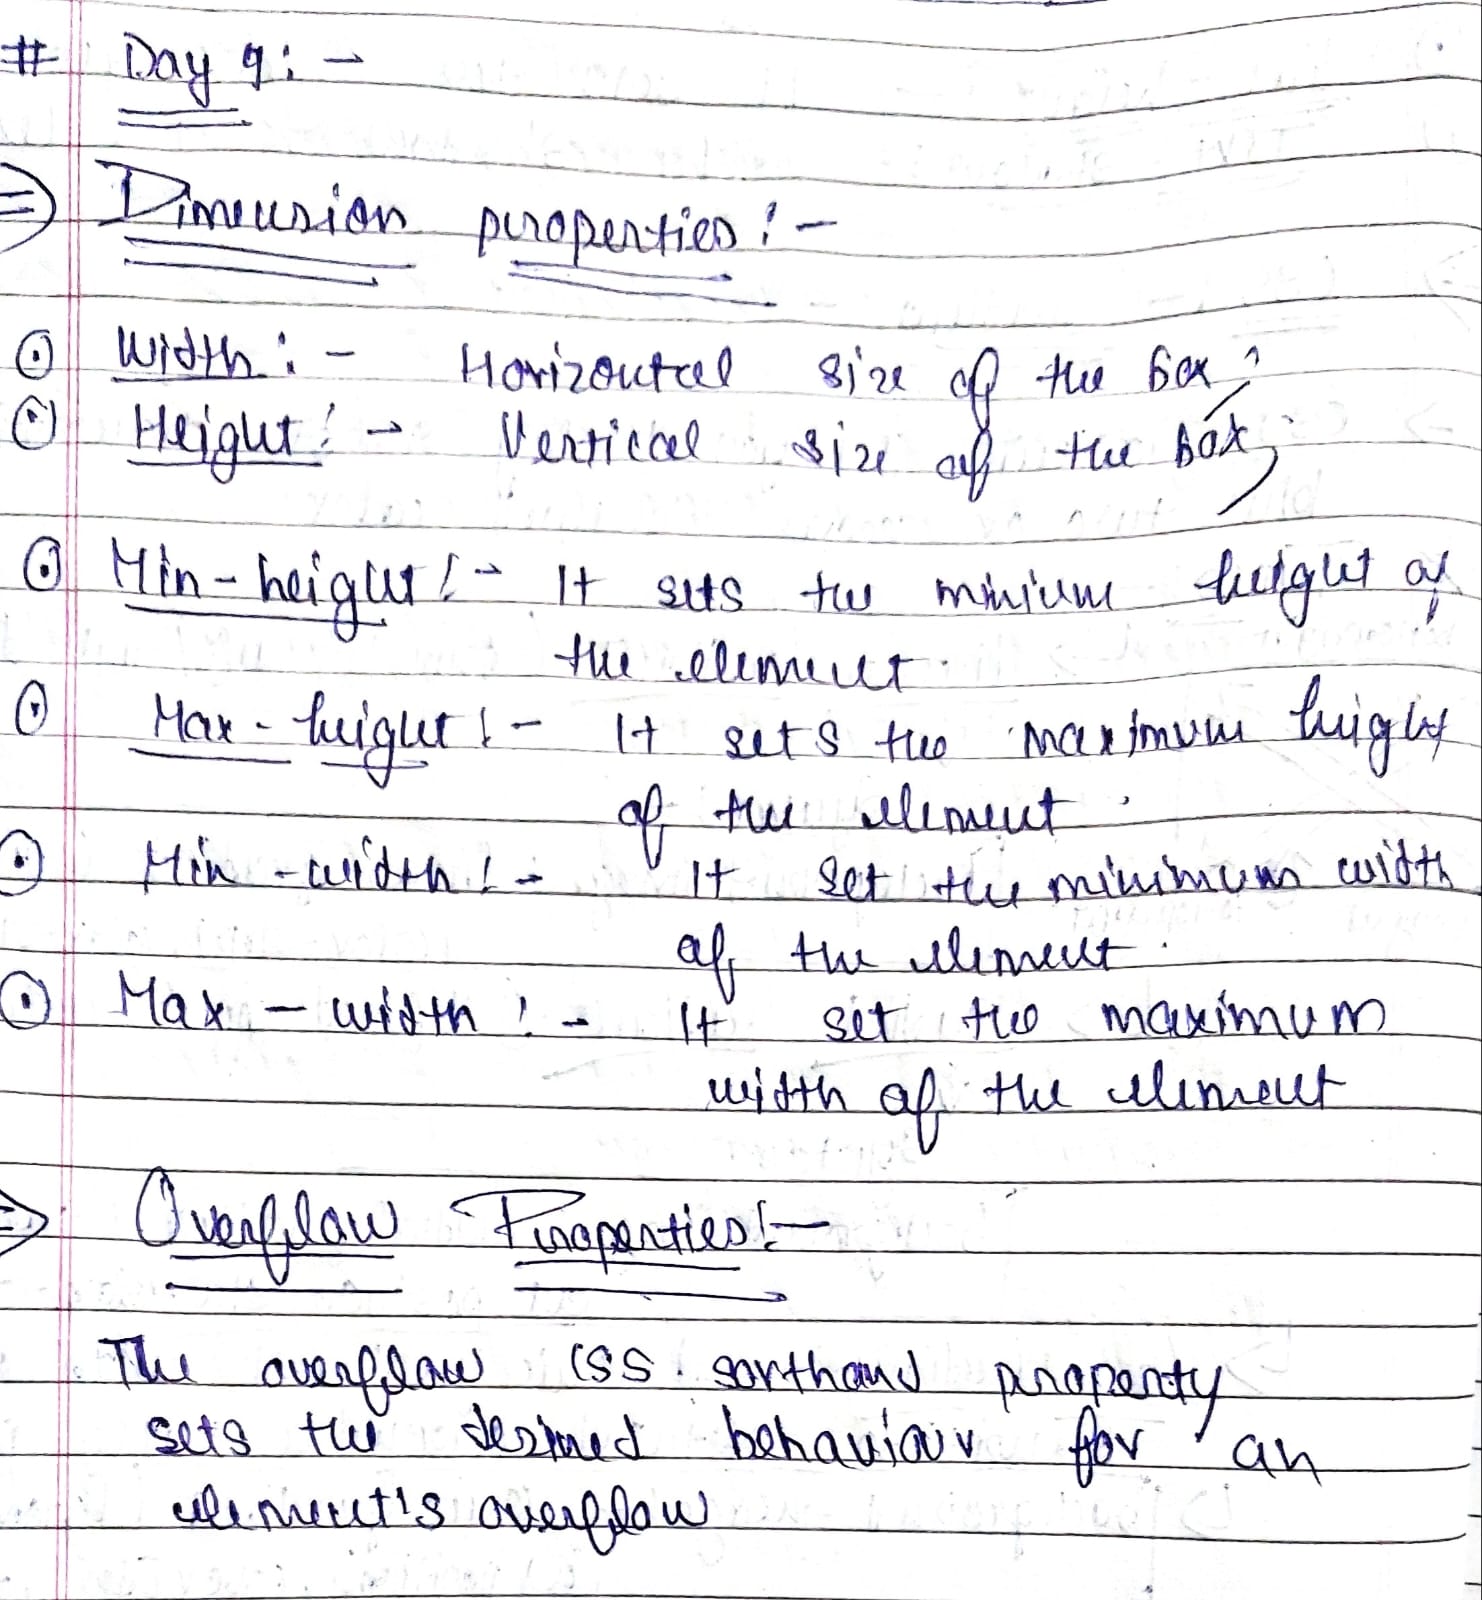 # Day 9:-
=> Dimension properties:-
⊙ Width:- Horizontal size of the box,
⊙ Height:- Vertical size of the box,
⊙ Min-height:- It sets the minium height of
the element.
⊙ Max-height:- It sets the maximum height
of the element.
⊙ Min-width:- It set the minimum width
of the element.
⊙ Max-width:- It set the maximum
width of the element
=> Overflow Properties:-
The overflow CSS sorthand property
sets the desired behaviour for an
element's overflow